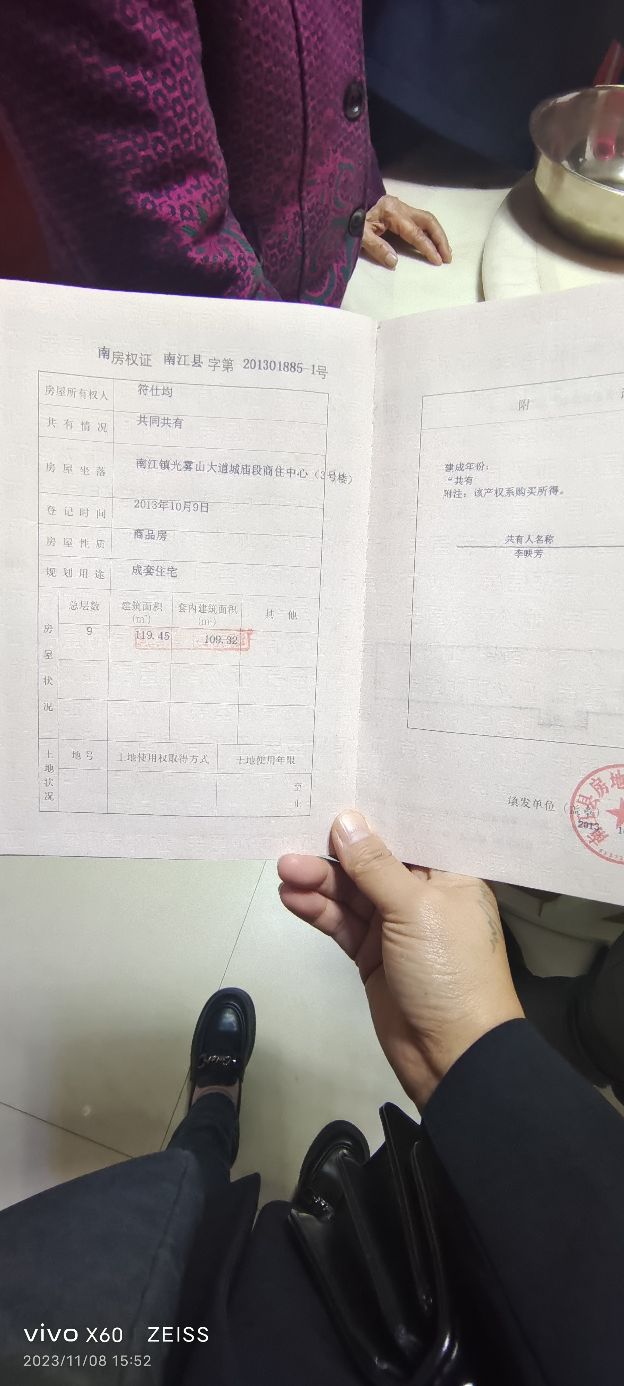 南房权证 南江县 字第 201301885-1号
房屋所有权人 符仕均
共有情况 共同共有
房屋坐落 南江镇光雾山大道城庙段商住中心（3号楼）
登记时间 2013年10月9日
房屋性质 商品房
规划用途 成套住宅
房屋状况
总层数 建筑面积（m²） 套内建筑面积（m²） 其他
9 119.45 109.32
土地状况
地号 土地使用权取得方式 土地使用年限
至
止
附
建成年份：
“共有
附注：该产权系购买所得。
共有人名称
李映芳
填发单位
县房地
2013
vivo X60 ZEISS
2023/11/08 15:52